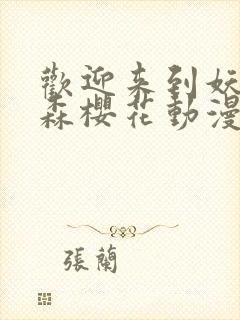 歡迎来到妖
森櫻花動漫
張蘭